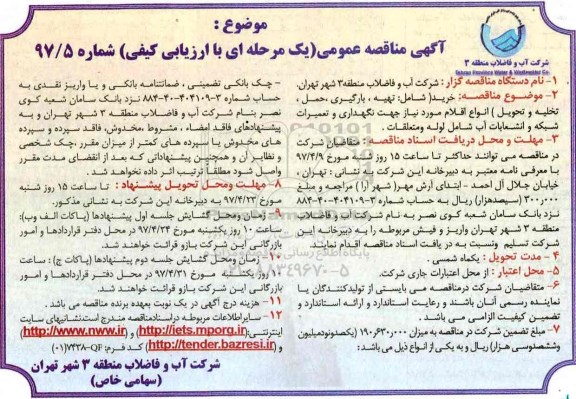 موضوع :
آگهی مناقصه عمومی(یک مرحله ای با ارزیابی کیفی) شماره ۹۷/۵
شرکت آب و فاضلاب منطقه ۳
Tehran Province Water & Wastewater Co
۱- نام دستگاه مناقصه گزار : شرکت آب و فاضلاب منطقه۳ شهر تهران.
۲- موضوع مناقصه: خرید( شامل: تهیه ، بارگیری ،حمل ،
تخلیه و تحویل ) انواع اقلام مورد نیاز جهت نگهداری و تعمیرات
شبکه و انشعابات آب شامل لوله ومتعلقات .
۳- مهلت و محل دریافت اسناد مناقصه : متقاضیان شرکت
در مناقصه می توانند حداکثر تا ساعت ۱۵ روز شنبه مورخ ۹۷/۴/۹
با معرفی نامه معتبر به دبیرخانه این شرکت به نشانی : تهران ،
خیابان جلال آل احمد - ابتدای آرش مهر( شهر آرا ) مراجعه و مبلغ
۳۰۰,۰۰۰ (سیصدهزار) ریال به حساب شماره ۳-۴۰۴۱۰۹-۴۰-۸۸۴
نزد بانک سامان شعبه کوی نصر به نام شرکت آب و فاضلاب
منطقه ۳ شهر تهران واریز و فیش مربوطه را به دبیرخانه این
شرکت تسلیم ونسبت به دریافت اسناد مناقصه اقدام نمایند.
۴- مدت تحویل : یکماه شمسی .
۵- محل اعتبار : از محل اعتبارات جاری شرکت.
۶- متقاضیان شرکت درمناقصه می بایستی از تولیدکنندگان یا
نماینده رسمی آنان باشند و رعایت استاندارد و ارائه استاندارد و
تضمین کیفیت الزامی می باشد .
۷- مبلغ تضمین شرکت در مناقصه به میزان ۱۹۰,۶۳۰,۰۰۰ (یکصدونودمیلیون
وششصدوسی هزار) ریال و به یکی از انواع ذیل می باشد:
- چک بانکی تضمینی ، ضمانتنامه بانکی و یا واریز نقدی به
حساب شماره ۳-۴۰۴۱۰۹-۴۰-۸۸۴ نزد بانک سامان شعبه کوی
نصر بنام شرکت آب و فاضلاب منطقه ۳ شهر تهران و به
پیشنهادهای فاقد امضاء ، مشروط ،مخدوش، فاقد سپرده و سپرده
های مخدوش یا سپرده های کمتر از میزان مقرر ،چک شخصی
و نظایر آن و همچنین پیشنهاداتی که بعد از انقضای مدت مقرر
واصل شود مطلقا ترتیب اثر داده نخواهد شد.
۸- مهلت ومحل تحویل پیشنهاد : تا ساعت ۱۵ روز شنبه
مورخ ۹۷/۴/۲۳ به دبیرخانه این شرکت به نشانی مذکور.
۹- زمان ومحل گشایش جلسه اول پیشنهادها (پاکات الف وب):
ساعت ۱۰ روز یکشنبه مورخ ۹۷/۴/۲۴ در محل دفتر قراردادها و امور
بازرگانی این شرکت بازو قرائت خواهند شد.
۱۰- زمان ومحل گشایش جلسه دوم پیشنهادها (پاکات ج) : ساعت
۱۰ روز یکشنبه مورخ ۹۷/۴/۳۱ در محل دفتر قراردادها و امور
بازرگانی این شرکت بازو قرائت خواهند شد.
۱۱- هزینه درج آگهی در یک نوبت بعهده برنده مناقصه می باشد .
۱۲- سایراطلاعات مربوطه دراسنادمناقصه مندرج است.نشانیهای سایت
اینترنتی:(http://iets.mporg.ir) و (http://www.nww.ir)
و (http://tender.bazresi.ir) کدفرم: ۷۴۳۸-QF(۰۱)
شرکت آب و فاضلاب منطقه ۳ شهر تهران
(سهامی خاص)